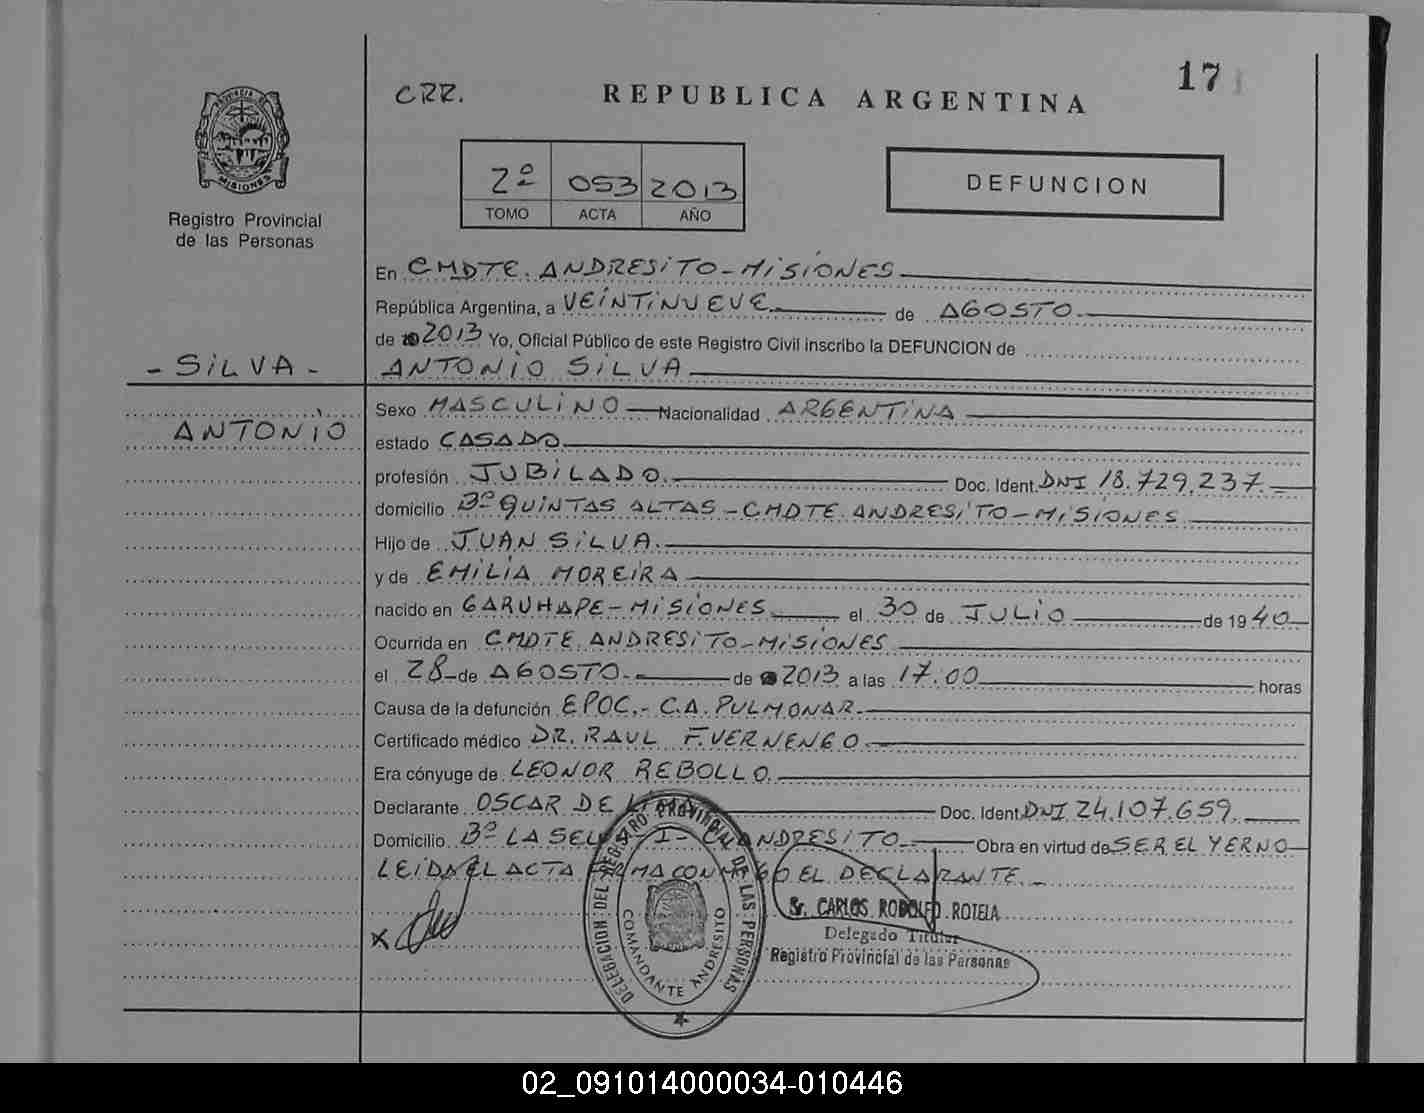 17
CRR.
REPUBLICA ARGENTINA
PROVINCIA DE
MISIONES
Registro Provincial
de las Personas
2º 053 2013
TOMO ACTA AÑO
DEFUNCION
En CMDTE. ANDRESITO - MISIONES
República Argentina, a VEINTINUEVE de AGOSTO
de 2013 Yo, Oficial Público de este Registro Civil inscribo la DEFUNCION de
- SILVA - ANTONIO SILVA
Sexo MASCULINO Nacionalidad ARGENTINA
ANTONIO
estado CASADO
profesión JUBILADO. Doc. Ident. DNI 18.729.237.
domicilio Bº QUINTAS ALTAS - CMDTE ANDRESITO - MISIONES
Hijo de JUAN SILVA.
y de EMILIA MOREIRA
nacido en GARUHAPE - MISIONES el 30 de JULIO de 1940
Ocurrida en CMDTE. ANDRESITO - MISIONES
el 28 de AGOSTO.- de 2013 a las 17:00 horas
Causa de la defunción EPOC.- C.A. PULMONAR.
Certificado médico DR. RAUL F. VERNENGO.
Era cónyuge de LEONOR REBOLLO
Declarante OSCAR DE LIMA Doc. Ident. DNI 24.107.659.
Domicilio Bº LA ANDRESITO Obra en virtud de SER EL YERNO
LEIDA EL ACTA FIRMA CONMIGO EL DECLARANTE.-
X
Sr. CARLOS RODOLFO ROTELA
Delegado Titular
Registro Provincial de las Personas
DELEGACION DEL REGISTRO PROVINCIAL DE LAS PERSONAS
COMANDANTE ANDRESITO
02_091014000034-010446